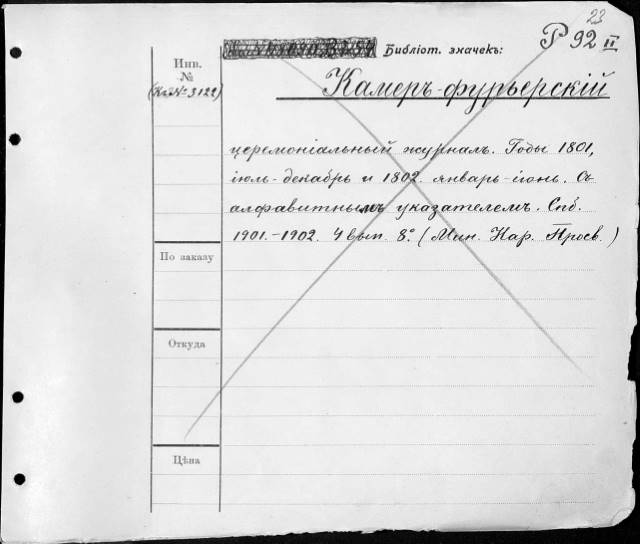 23
Библіот. значекъ: P 92 II
Инв.
№
(Кн№ 3122)
Камеръ-фурьерскій
церемоніальный журналъ. Годы 1801,
іюль-декабрь и 1802. январь-іюнь. Съ
алфавитнымъ указателемъ. Спб.
1901.-1902. 4 вып. 8°. (Мин. Нар. Просв.)
По заказу
Откуда
Цѣна